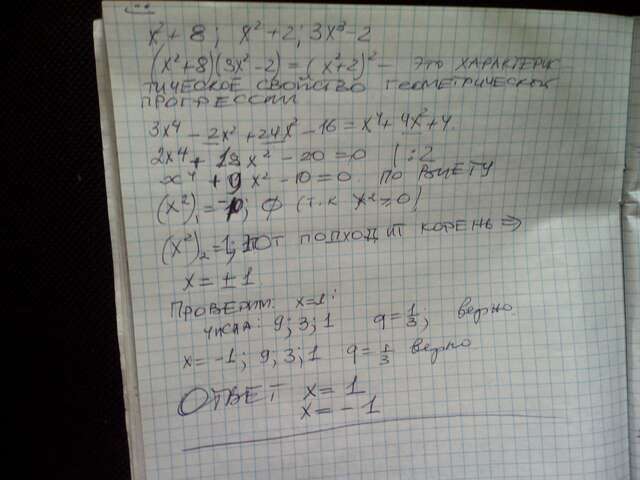 x² + 8 ; x² + 2 ; 3x² - 2
(x² + 8)(3x² - 2) = (x² + 2)² - это характерис
тическое свойство геометрической
прогрессии
3x⁴ - 2x² + 24x² - 16 = x⁴ + 4x² + 4.
2x⁴ + 18x² - 20 = 0 | : 2
x⁴ + 9x² - 10 = 0. по Виету
(x²)₁ = -10; ∅ (т.к x² ≥ 0)
(x²)₂ = 1; этот подходит корень ⇒
x = ± 1
Проверим: x = 1:
числа: 9; 3; 1 q = 1/3; верно.
x = -1; 9; 3; 1 q = 1/3 верно
Ответ x = 1
x = - 1